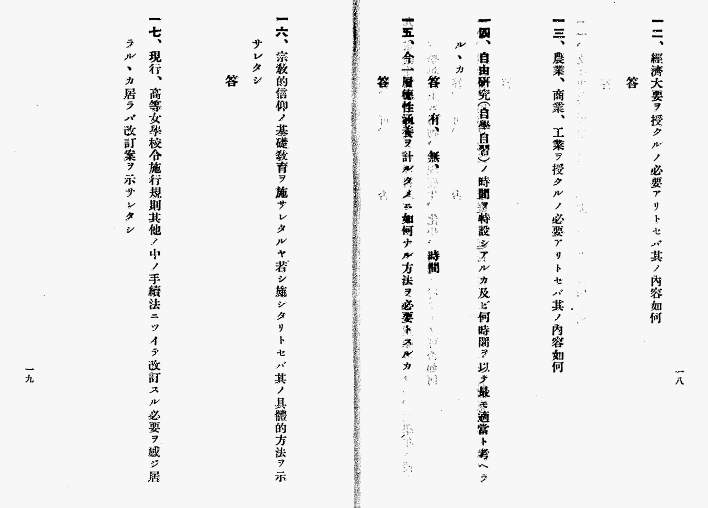 一二、經濟大要ヲ授クルノ必要アリトセバ其ノ內容如何
答
一三、農業、商業、工業ヲ授クルノ必要アリトセバ其ノ內容如何
一四、自由硏究(自學自習)ノ時間ヲ特設シアルカ及ビ何時間ヲ以テ最モ適當ト考ヘラ
ル、カ
答 有、無、 時間
一五、今一層德性涵養ヲ計ルタメニ如何ナル方法ヲ必要トスルカ
答
一六、宗敎的信仰ノ基礎敎育ヲ施サレタルヤ若シ施シタリトセバ其ノ具體的方法ヲ示
サレタシ
答
一七、現行、高等女學校令施行規則其他ノ中ノ手續法ニツイテ改訂スル必要ヲ感ジ居
ラル、カ居ラバ改訂案ヲ示サレタシ
一八
一九